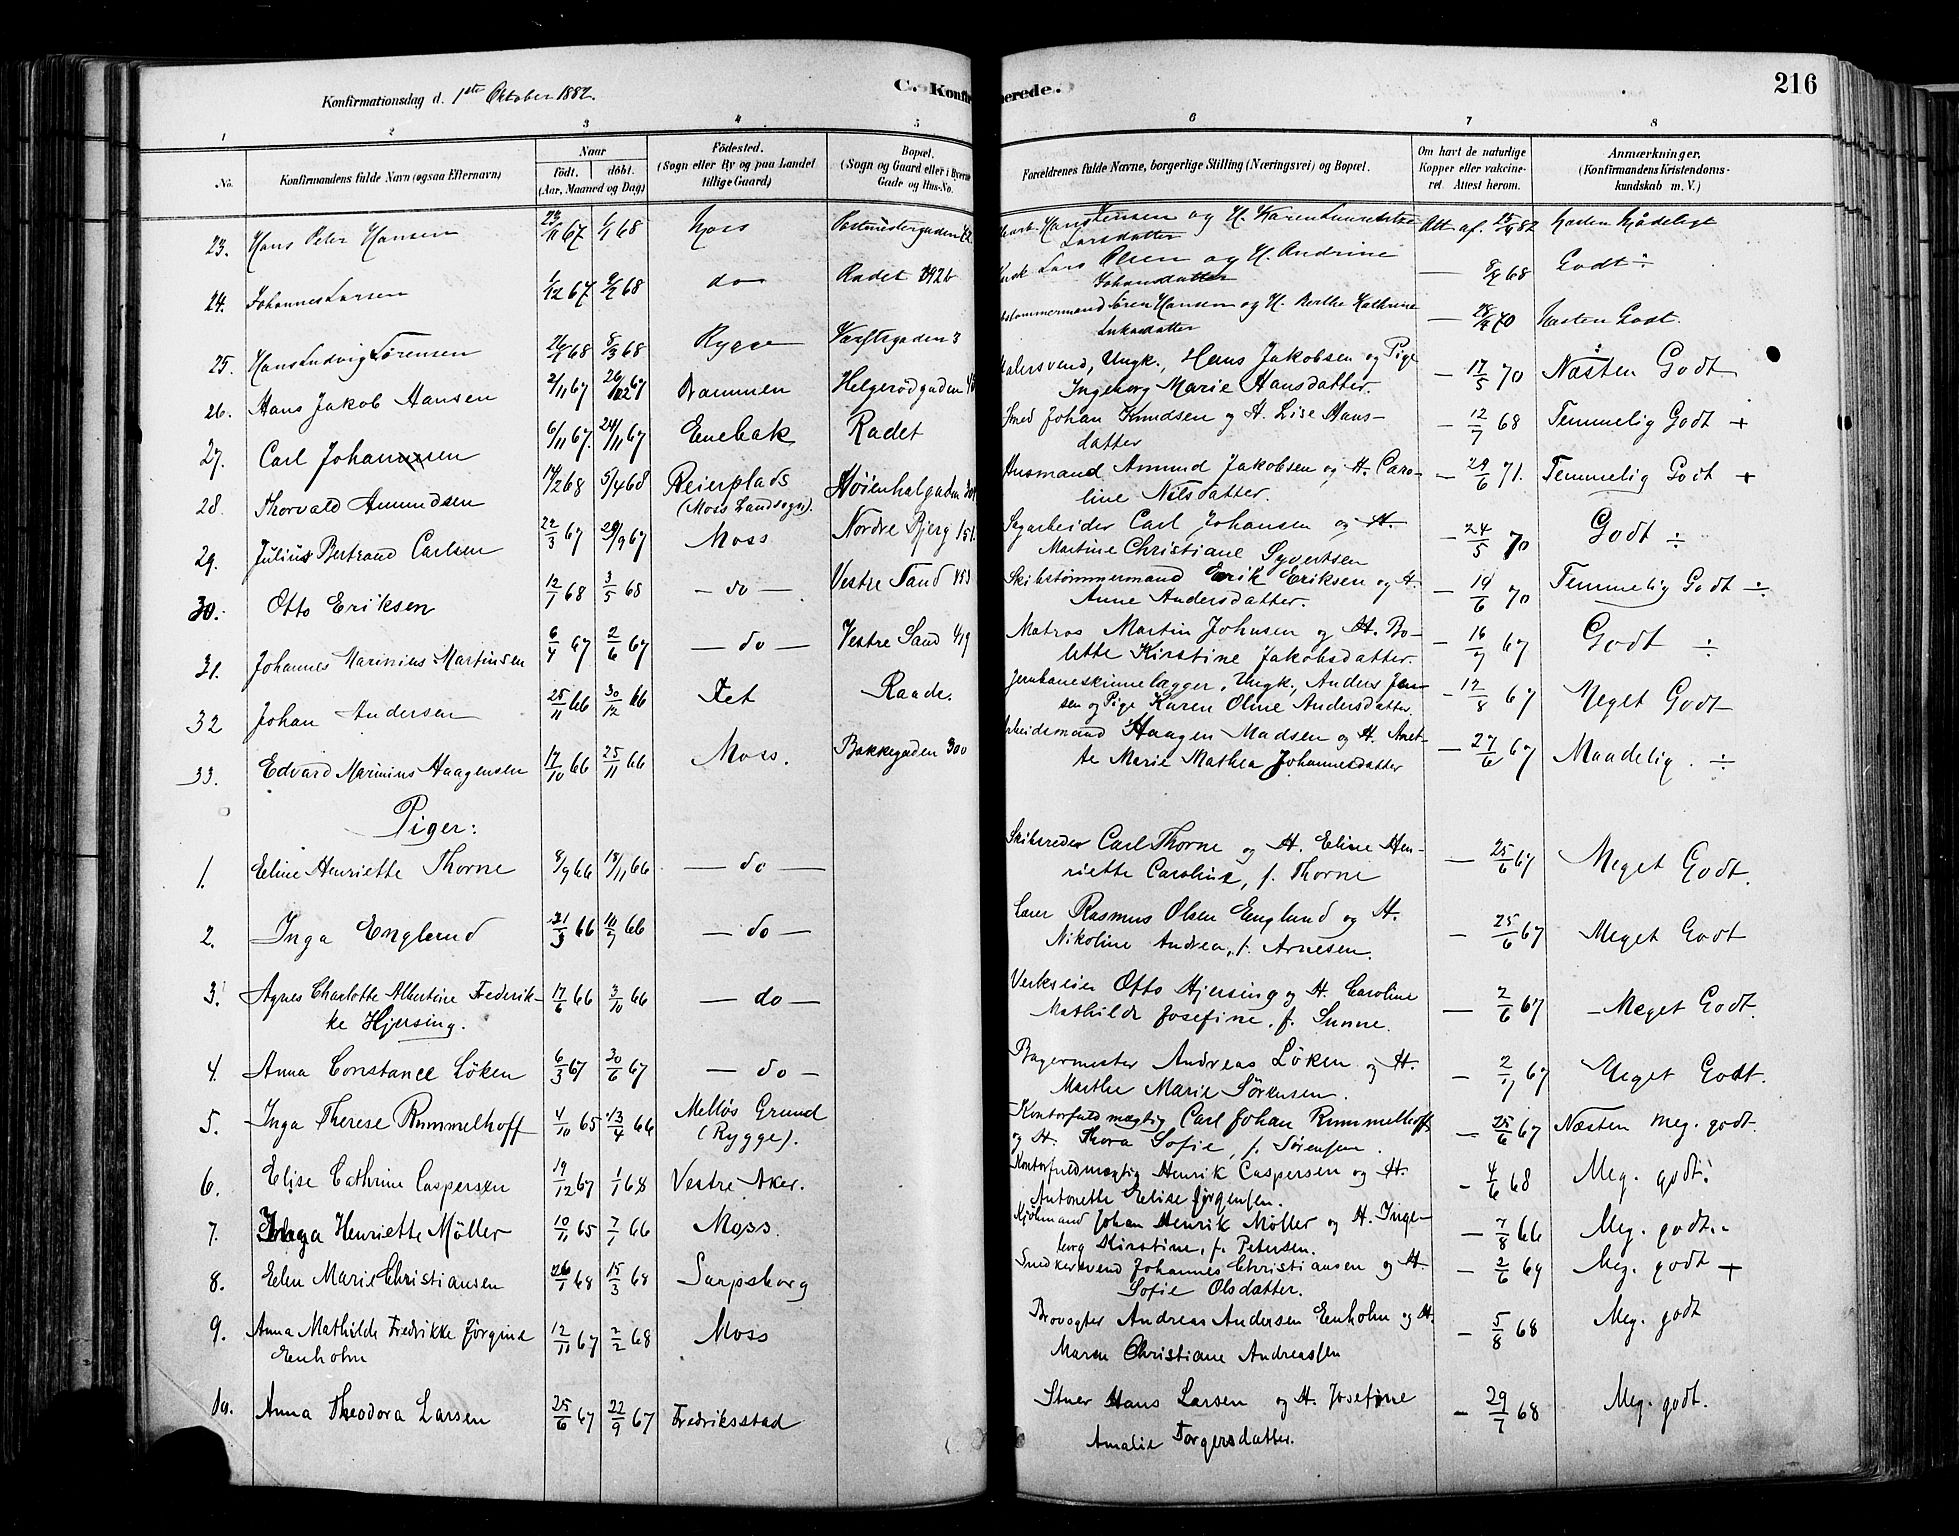 Konfirmationsdag d. 1ste Oktober 1882.
C. Konfirmerede.
216
1 2 3 4 5 6 7 8
No.
Konfirmandens fulde Navn (ogsaa Efternavn)
Naar
födt. döbt.
(Aar, Maaned og Dag)
Födested.
(Sogn eller By og paa Landet
tillige Gaard)
Bopæl.
(Sogn og Gaard eller i Byerne
Gade og Hus-No.
Forældrenes fulde Navne, borgerlige Stilling (Næringsvei) og Bopæl.
Om havt de naturlige
Kopper eller vakcine-
ret. Attest herom.
Anmærkninger.
(Konfirmandens Kristendoms-
kundskab m. V.)
23. Hans Peter Hansen 23/11 67 1/1 68 Moss Postmestergaden Hans Jensen og H. Karen
Larsdatter Att af. 82
24. Johannes Larsen 1/12 67 9/2 68 do Radet 192b Lars Olsen og H. Andrine
Johansdatter — 8/8 68 Godt ÷
25. Hans Ludvig Sørensen 68 8/3 68 Rygge 3 Søren Hansen og H. Berthe Kathrine
Lukasdatter — 70 Næsten Godt.
26. Hans Jakob Hansen 2/11 67 26/12 67 Drammen Helgerødgaden Malersvend, Ungk., Hans Jakobsen og Pige
Ingeborg Marie Hansdatter. — 17/5 70 Næsten Godt
27. Carl Johannsen 6/11 67. 24/11 67 Enebak Radet Smed Johan Knudsen og H. Lise Hans-
datter — 12/7 68 Temmelig Godt +
28. Thorvald Amundsen 14/2 68 5/4 68 Reierplads
(Moss Landsogn). Høienhalgaden Husmand Amund Jakobsen og H. Caro-
line Nilsdatter. — 29/6 71. Temmelig Godt +
29. Julius Bertrand Carlsen 22/3 67 29/9 67 Moss Nordre Bjerg 151. Sagarbeider Carl Johansen og H.
Martine Christiane Syvertsen — 24/5 70 Godt ÷
30. Otto Eriksen 12/1 68 3/5 68 — do — Vestre Sand 453 Skibstømmermand Erik Eriksen og H.
Anne Andersdatter. — 14/6 70 Temmelig Godt ÷
31. Johannes Marinius Martinsen 6/4 67 2/6 67 — do — Vestre Sand 419 Matros Martin Johnsen og H. Bo-
lette Kirstine Jakobsdatter. — 16/7 67 Godt ÷
32 Johan Andersen 25/11 66 30/12 66 Fet Raade. Jernbaneskinnelægger, Ungk., Anders Jen-
sen og Pige Karen Oline Andersdatter. — 12/8 67 Meget Godt
33. Edvard Marinius Haagensen 17/10 66 25/11 66 Moss. Bakkegaden 300 Arbeidsmand Haagen Madsen og H. Anet-
te Marie Mathea Johannesdatter — 27/6 67 Maadelig. ÷
Piger:
1. Eline Henriette Thorne 8/9 66 18/11 66 — do — Skibsreder Carl Thorne og H. Eline Hen-
riette Caroline, f. Thorne — 25/6 67 Meget Godt.
2. Inga Englund 31/3 66 10/7 66 — do — Lærer Rasmus Olsen Englund og H.
Nikoline Andrea, f. Arnesen. — 25/6 67 Meget Godt
3. Agnes Charlotte Albertine Frederik-
ke Hjersing. 17/6 66 3/10 66 — do — Verkseier Otto Hjersing og H. Caroline
Mathilde Josefine, f. Sunne. — 2/6 67 — Meget Godt.
4. Anna Constance Løken 6/3 67 30/6 67 — do — Bagermester Andreas Løken og H.
Marthe Marie Sørensen. — 2/7 67 Meget Godt.
5. Inga Therese Rummelhoff 4/10 65 13/4 66 Melløs Grund
(Rygge). Kontorfuldmægtig Carl Johan Rummelhoff
og H. Thora Sofie, f. Sørensen. — 25/6 67 Næsten meg. godt.
6. Elise Cathrine Caspersen 19/12 67 1/1 68 Vestre Aker. Kontorfuldmægtig Henrik Caspersen og H.
Antonette Elise Jørgensen. — 4/6 68 Meg. godt.
7. Inga Henriette Møller 10/11 65 7/1 66 Moss. Kjøbmand Johan Henrik Møller og H. Inge-
borg Kirstine, f. Petersen. — 7/8 66 Meg. godt.
8. Elen Marie Christiansen 26/1 68 15/3 68 Sarpsborg Snedkersvend Johannes Christiansen og H.
Sofie Olsdatter. — 2/6 69 Meg. godt +
9. Anna Mathilde Fredrikke Jørgine
Enholm 12/11 67 2/2 68 Moss Brovogter Andreas Andersen Enholm og H.
Maren Christiane Andreassen — 5/8 68 Meg. godt
10. Anna Theodora Larsen 25/6 67 22/9 67 Fredriksstad Stuer Hans Larsen og H. Josefine
Amalie Torgersdatter. — 29/7 68 Meg. godt.